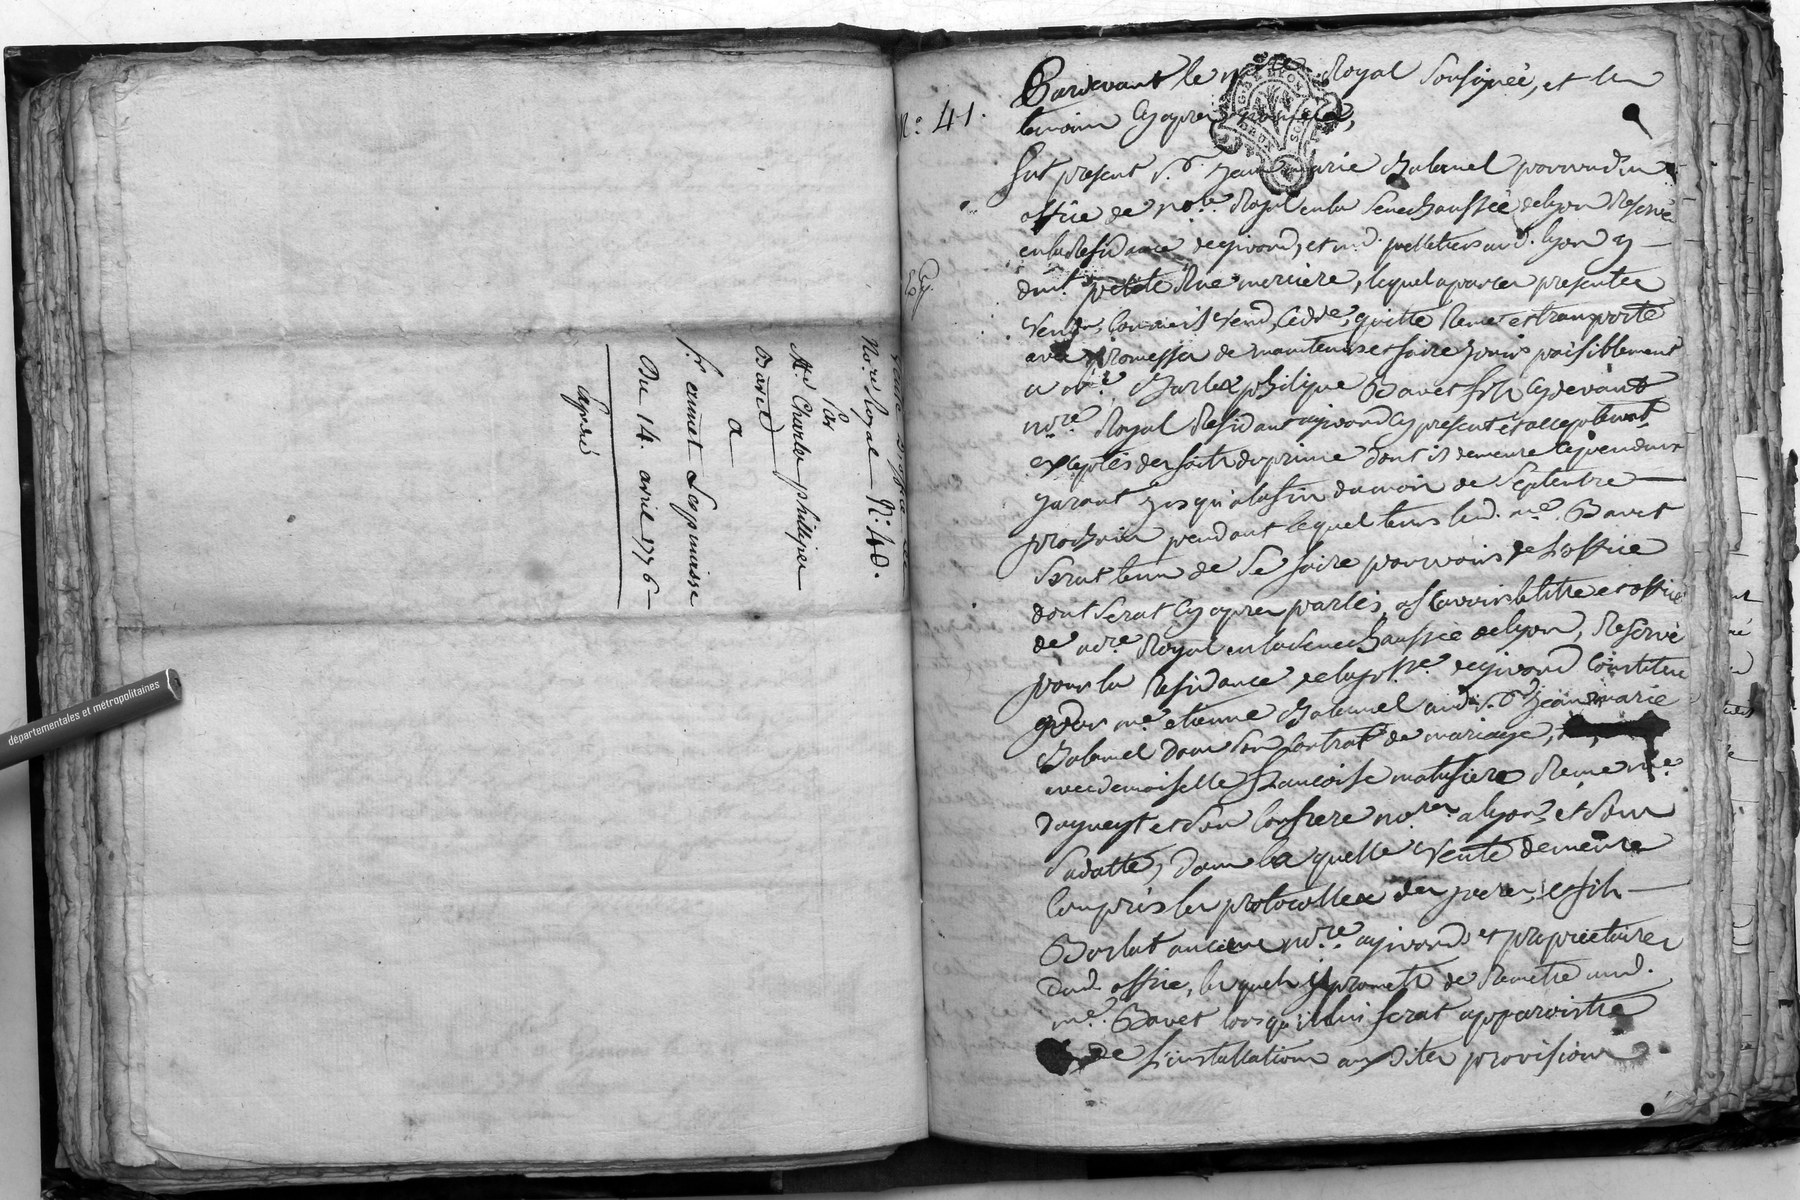 départementales et métropolitaines
Vente d'office de
No.re Royal — N.º 40.
Par
M.e Charles phillipes
Bavet
a
s.r
Du 14. avril 1776 —
N.º 41.
Pardevant le no.re Royal soussigné, et les
temoins cy apres nommés,
fut présent s.r Jean marie Balmel pourvu d'un
office de no.re Royal en la Senechaussée de lyon Reservé
en la Residance de givord, et m.d pelletier aud. lyon y
dem.t petite Rue merciere, lequel a par ces presentes
vendu, comme il vend, cedde, quitte Remet et transporte
avec promesse de maintenir et faire jouir paisiblement
a M.e Charles philippe Bavet fils cy devant
no.re Royal Residant a givord cy present et acceptant
exceptés des faits du prince dont il demeure cependant
garant jusqu'a la fin du mois de Septembre
prochain pendant lequel tems led. m.e Bavet
serat tenu de se faire pourvoir de l'office
dont serat cy apres parlés, assavoir le titre et office
de no.re Royal en la senechaussée de lyon, Reservé
pour la Residance de la p.sse de givord Constitué
par m.e etienne Balmel aud. s.r Jean marie
Balmel dans son contrat de mariage,
avec demoiselle francoise Reçue m.e
et son Confrere no.res a lyon, et sous
sa datte, dans la quelle vente demeure
Compris les protocolles des peres, et fils
Borlat anciens no.res a givord et proprietaires
dud. office, lesquels il promet de Remettre aud.
m.e Bavet lorsqu'il lui serat apparoistre
de l'installation au dites provisions